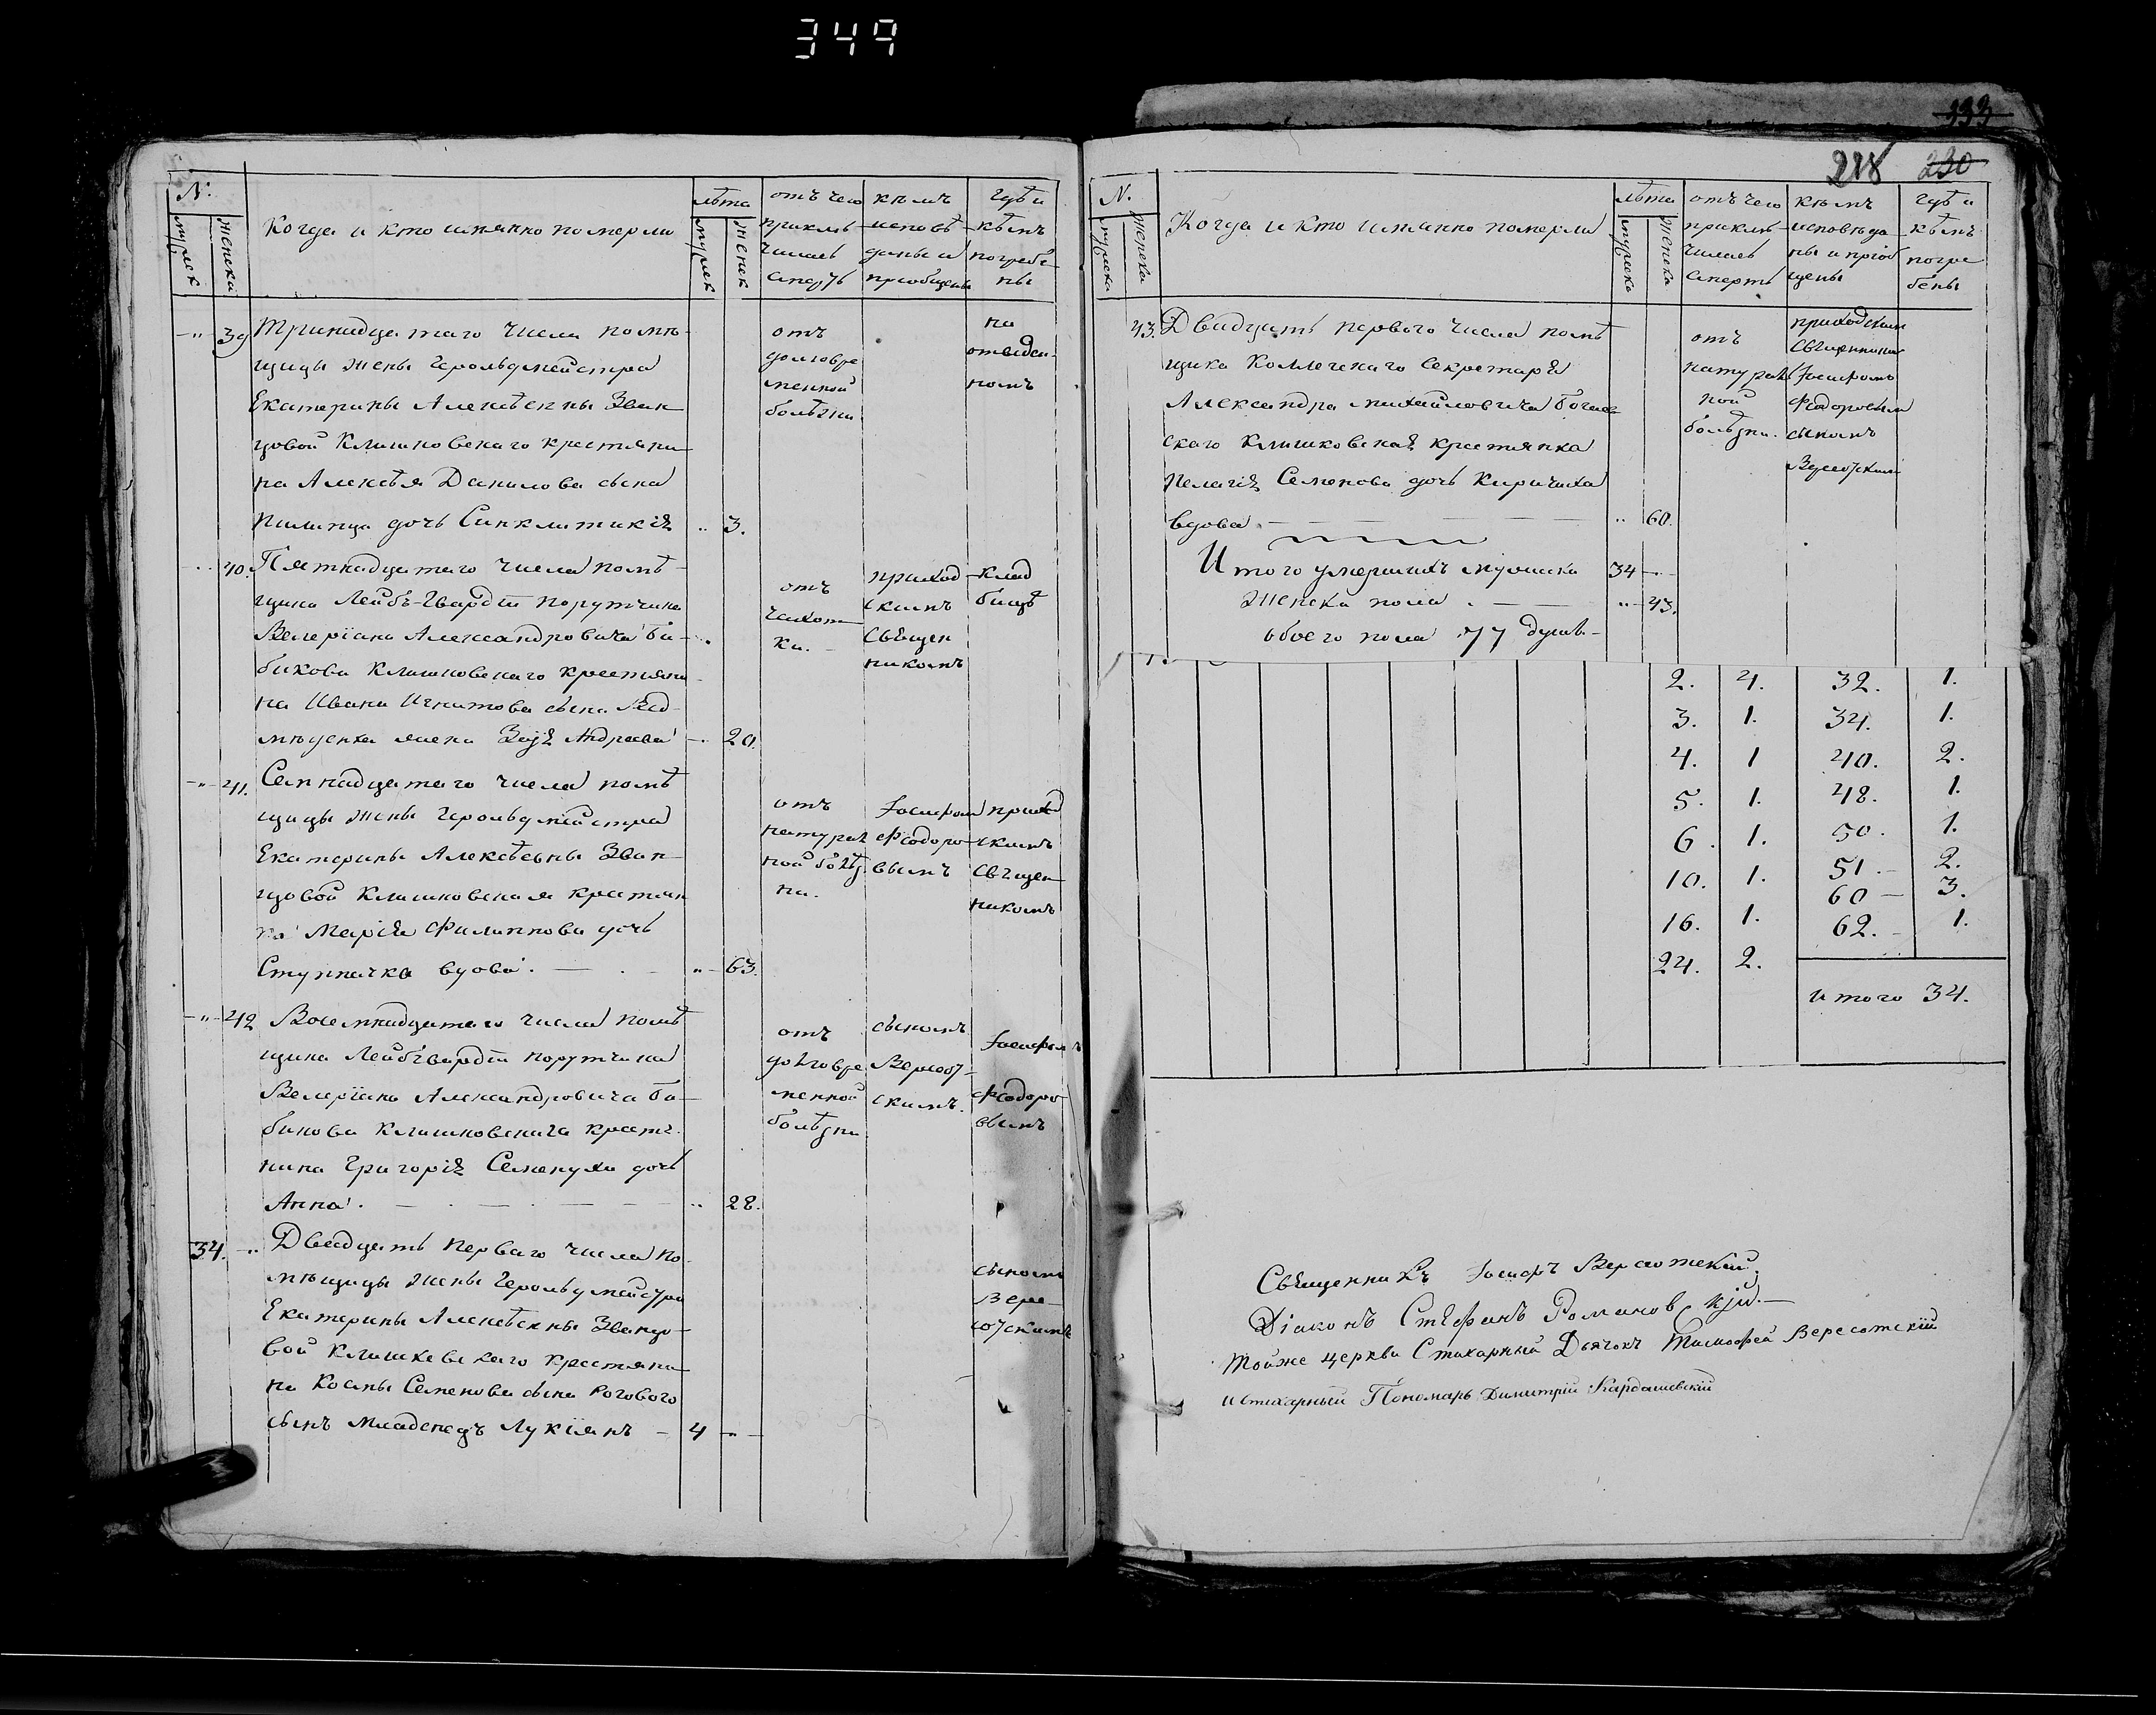 349
N:
мужск
женска
Когда и кто имянно померли
лѣта
мужск
женск
отъ чего
приклю
чилась
смерть
кѣмъ
исповѣ
даны и
пріобщены
гдѣ и
кѣмъ
погребе
ны
39
Тринадцатаго числа помѣ
щицы жены Герольдмейстра
Екатерины Алексѣевны Зван
цовой Клишковскаго крестьяни
на Алексѣя Данилова сына
дочь Синклитикія
3.
отъ
долговре
менной
болѣзни
на
отведен
номъ
40.
Пятнадцатаго числа помѣ
щика Лейбъ-Гвардіи порутчика
Валеріана Александровича Би
бикова Клишковскаго крестьяни
на Ивана Игнатова сына
жена Андреева
20.
отъ
чахот
ки.
приход
скимъ
священ
никомъ
клад
бищѣ
41.
Семнадцатаго числа помѣ
щицы жены Герольдмейстра
Екатерины Алексѣевны Зван
цовой Клишковская крестьян
ка Марія Филиппова дочь
Ступачка вдова.
63.
отъ
натурал
ной болѣз
ни.
Іосифом
Федоро
вымъ
приход
скимъ
священ
никомъ
42
Восемнадцатаго числа помѣ
щика Лейбгвардіи порутчика
Валеріана Александровича Би
бикова Клишковскаго крестья
нина Григорія Семенухи дочь
Анна.
28.
отъ
долговре
менной
болѣзни
сыномъ
Вересот
скимъ.
Іосифомъ
Федоро
вымъ
34.
Двадцать перваго числа по
мѣщицы жены Герольдмейстра
Екатерины Алексѣевны Званцо
вой Клишковскаго крестьяни
на Космы Семенова сына Рогового
сынъ младенецъ Лукіянъ
4
сыномъ
Вере
сотскимъ
333
218
230
N.
мужска
женска
Когда и кто имянно померли
лѣта
мужска
женска
отъ чего
приклю
чилась
смерть
кѣмъ
исповѣда
ны и пріоб
щены
гдѣ и
кѣмъ
погре
бены
43.
Двадцать первого числа помѣ
щика Коллечскаго Секретаря
Александра Михайловича
скаго Клишковская крестьянка
Пелагія Семенова дочь Киричиха
вдова.
60.
отъ
натурал
ной
болѣзни.
приходскимъ
священникомъ
Іосифомъ
Федоровымъ
сыномъ
Вересотскимъ
Итого умершихъ мужска
34
женска пола
43.
обоего пола 77 душъ
2. 4. 32. 1.
3. 1. 34. 1.
4. 1 40. 2.
5. 1. 48. 1.
6. 1. 50. 1.
10. 1. 51. 2.
60 3.
16. 1. 62. 1.
24. 2.
итого 34.
Священникъ Іосифъ Вересотскій.
Діаконъ Стефанъ Романов
Тойже церкви Стихарный Дьячокъ Тимофей Вересотскій
и стихарный Пономарь Димитрій Кардашевскій